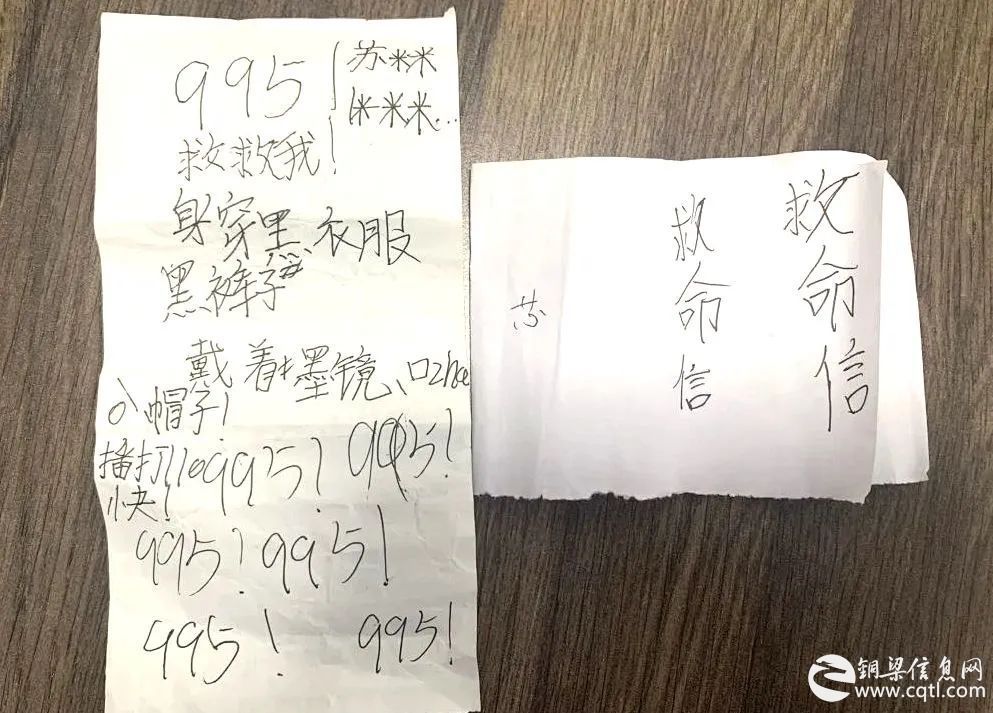 995！
苏米米
米米米...
救救我！
身穿黑衣服
黑裤子
戴着墨镜、口zhao
帽子！
播打110
快！
995！ 995！
995！ 995！
995！ 995！
救命信
救命信
苏
铜梁信息网
www.cqtl.com